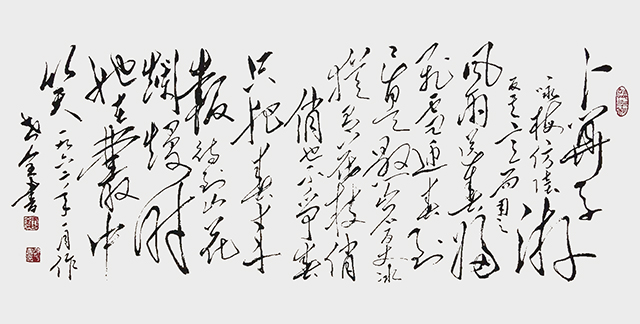 卜算子
咏梅仿陆游
反其意而用之
风雨送春归
飞雪迎春到
已是悬崖百丈冰
犹有花枝俏
俏也不争春
只把春来
报待到山花
烂漫时
她在丛中
笑一九六二年一月作
全书